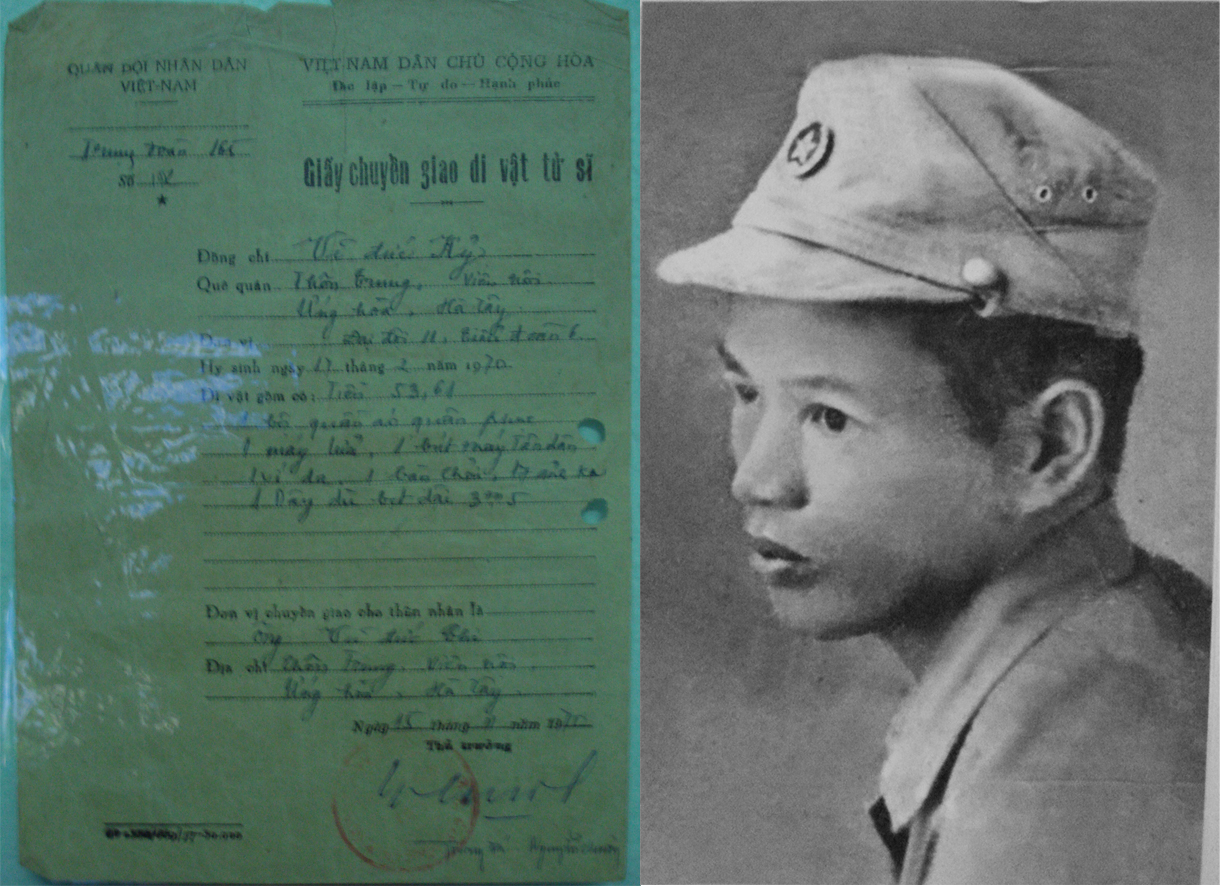 QUÂN ĐỘI NHÂN DÂN
VIỆT-NAM
Trung đoàn 165
Số
VIỆT-NAM DÂN CHỦ CỘNG HÒA
Độc lập — Tự do — Hạnh phúc
Giấy chuyển giao di vật tử sĩ
Đồng chí Vũ đức Kỷ
Quê quán Thôn Trung, Viên nội
Ứng hòa, Hà Tây
Đơn vị Đại đội 11, Tiểu đoàn 6
Hy sinh ngày 17 tháng 2 năm 1970
Di vật gồm có: Tiền 53,61
1 bộ quần áo quân phục
1 máy lửa, 1 bút máy
1 ví da, 1 bàn chải,
1 Dây dù bẹt dài 3m 5
Đơn vị chuyển giao cho thân nhân là
Ông Vũ đức
Địa chỉ thôn Trung, Viên nội,
Ứng hòa, Hà Tây
Ngày 15 tháng năm 1970
Thủ trưởng